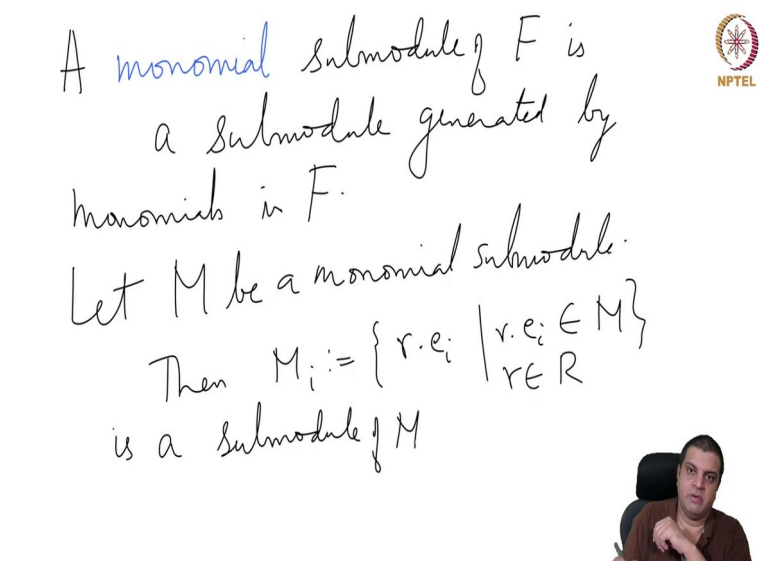 A monomial submodule of F is
a submodule generated by
monomials in F.
Let M be a monomial submodule.
Then M_i := { r.e_i | r.e_i ∈ M }
r ∈ R
is a submodule of M
NPTEL